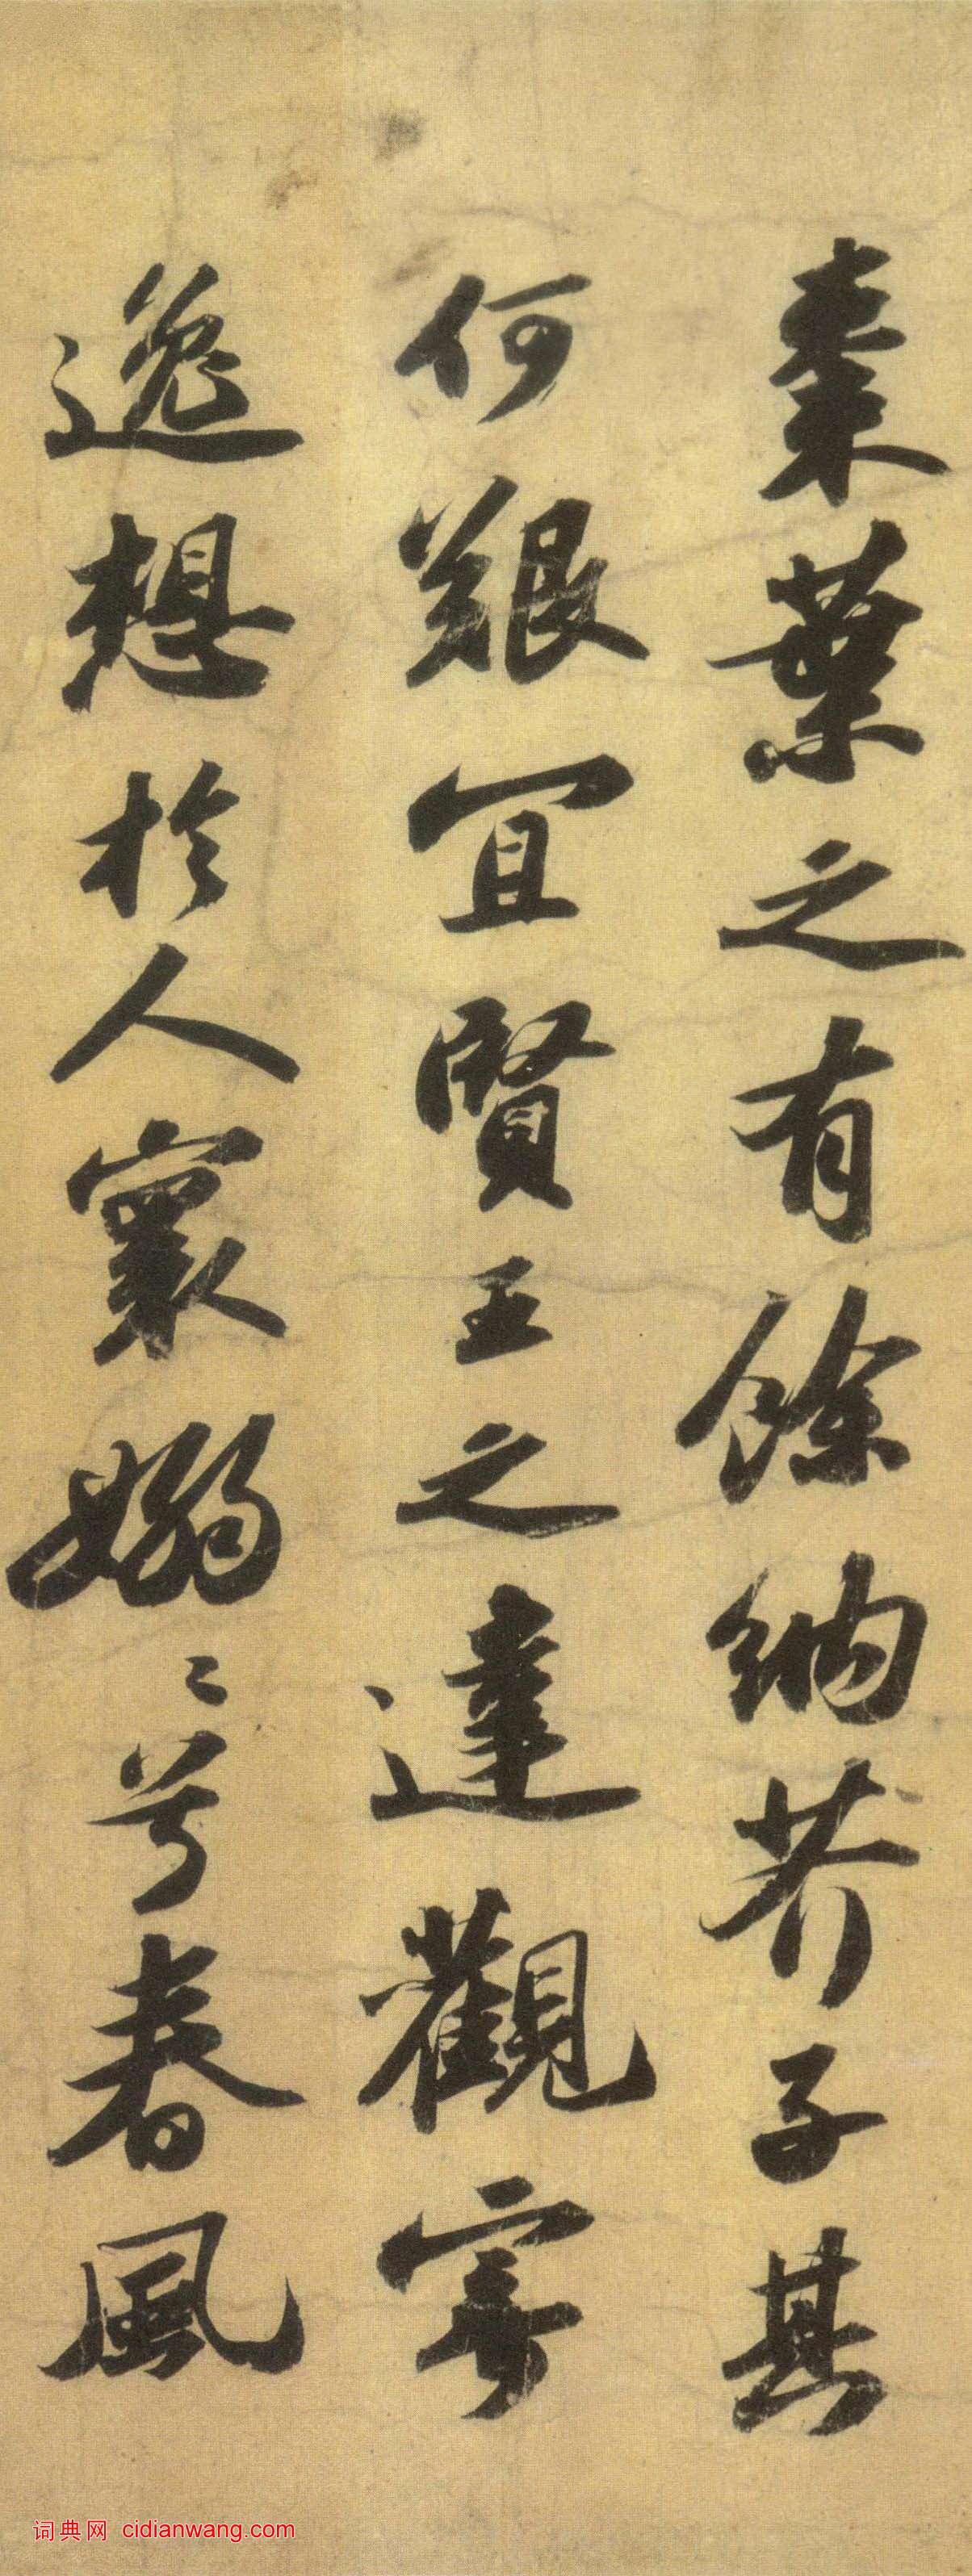 棗葉之有餘納芥子其
何艱宜賢王之達觀寄
逸想於人寰嫋〻兮春風
词典网 cidianwang.com